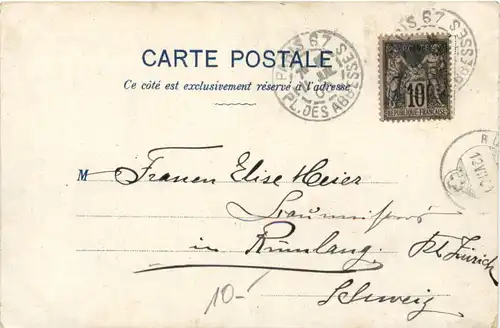 PARIS 67
PL. DES ABBESSES
CARTE POSTALE
Ce côté est exclusivement réservé à l'adresse
POSTES
10
REPUBLIQUE FRANCAISE
M Frauen Elise Meier
in Rümlang. Kt. Zürich
Schweiz
10.-